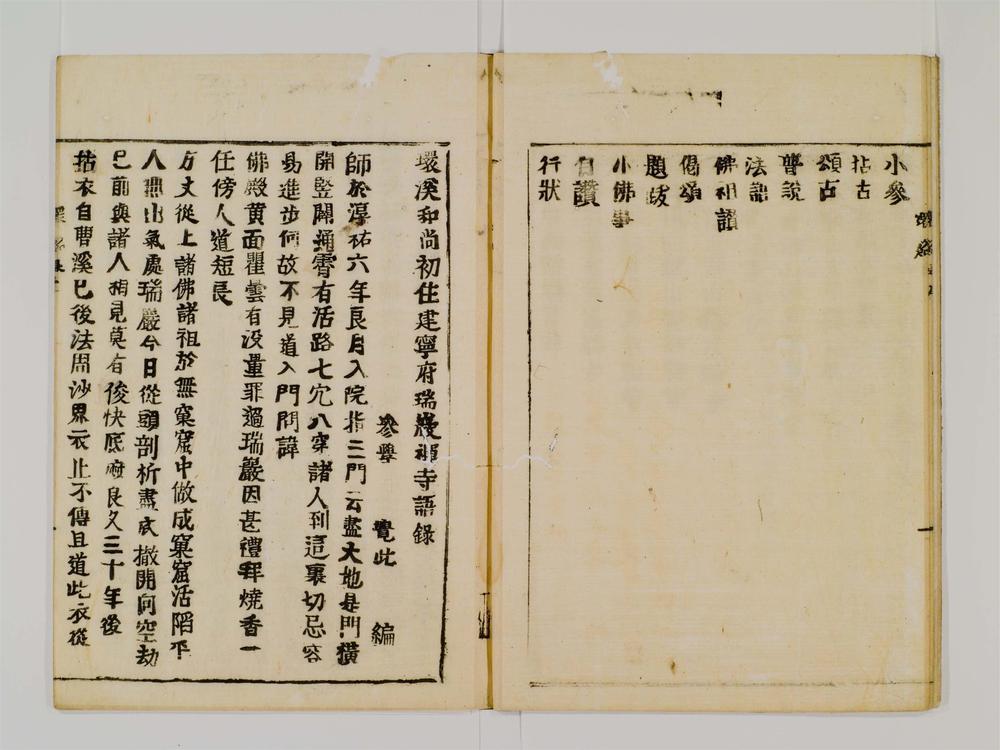 小參
拈古
頌古
普説
法語
佛祖讃
偈頌
題跋
小佛事
自讃
行狀
環溪和尚初住建寧府瑞巖禪寺語錄
參學 覺此 編
師於淳祐六年良月入院指三門云盡大地是門橫
開竪闢通霄有活路七穴八穿諸人到這裏切忌容
易進步何故不見道入門問諱
佛殿黄面瞿曇有没量罪過瑞巖因甚禮拜燒香一
任傍人道短長
方丈從上諸佛諸祖於無窠窟中做成窠窟活陷平
人無出氣處瑞巖今日從頭剖析盡底撤開向空劫
已前與諸人相見莫有俊快底麽良久三十年後
拈衣自曹溪已後法周沙界衣止不傳且道此衣從